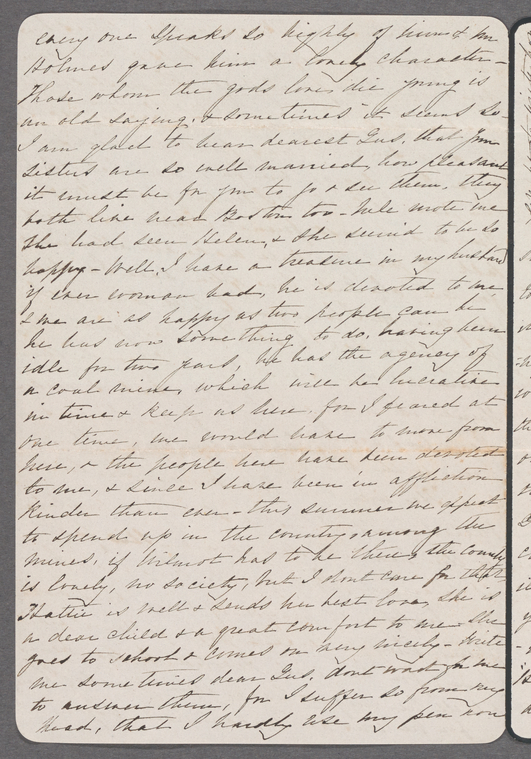 every one speaks so highly of him & Mr
Holmes gave him a lovely character -
Those whom the gods love, die young is
an old saying, & sometimes it seems so -
I am glad to hear dearest Gus, that your
sisters are so well married, how pleasant
it must be for you to go & see them. They
both live near Boston too - Jule wrote me
she had seen Helen, & she seem'd to be so
happy - Well, I have a treasure in my husband
if ever woman had, he is devoted to me
& we are as happy as two people can be
he has now something to do, having been
idle for two years, he has the agency of
a coal mine, which will be lucrative
in time & keep us here, for I feared at
one time, we would have to move from
here, & the people here have been devoted
to me, & since I have been in affliction
kinder than ever - this summer we expect
to spend up in the country, among the
mines, if Wilmot has to be there, the country
is lovely, no society, but I dont care for that
Hattie is well & sends her best love, she is
a dear child & a great comfort to me - She
goes to school & comes on very nicely - Write
me sometimes dear Gus, dont wait for me
to answer them, for I suffer so from my
Head, that I hardly use my pen now